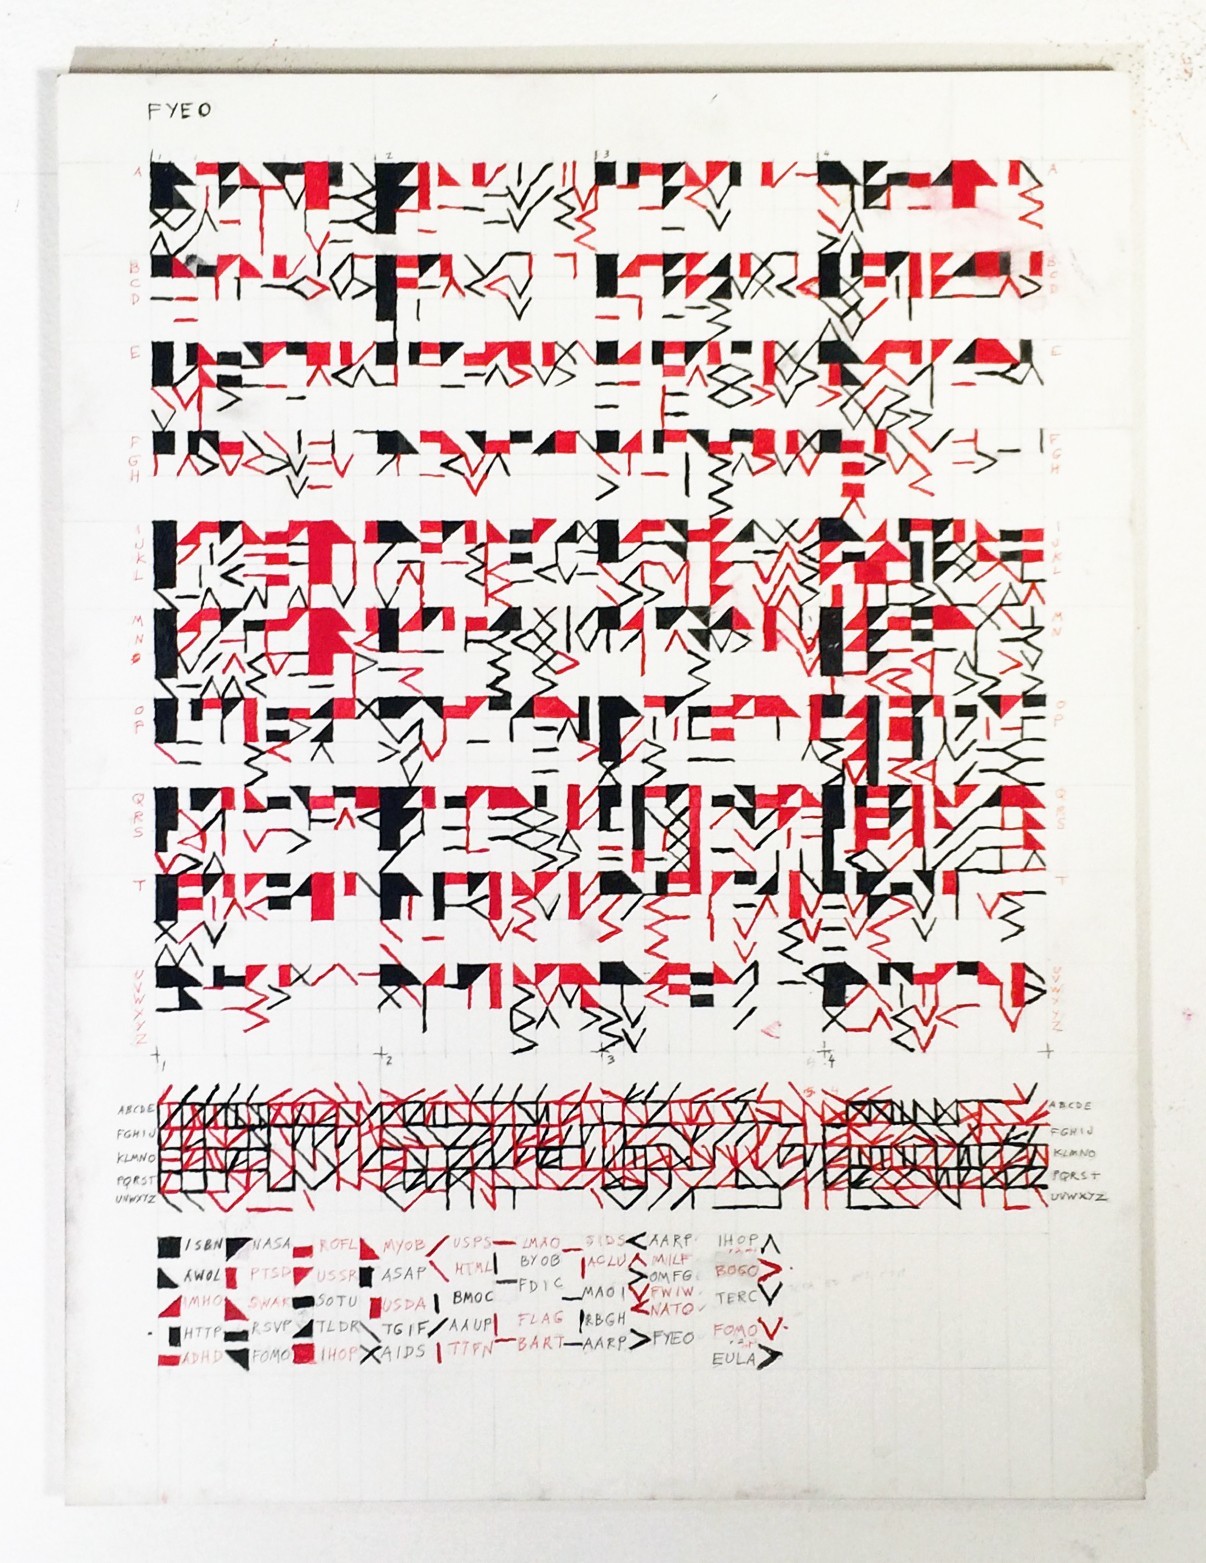 FYEO
1 2 3 4
A A
B B
C C
D D
E E
F F
G G
H H
I I
J J
K K
L L
M M
N N
O
O O
P P
Q Q
R R
S S
T T
U U
V V
W W
X X
Y Y
Z Z
1 2 3 4
ABCDE ABCDE
FGHIJ FGHIJ
KLMNO KLMNO
PQRST PQRST
UVWXYZ UVWXYZ
ISBN NASA ROFL MYOB USPS LMAO SIDS AARP IHOP
AWOL PTSD USSR ASAP HTML BYOB ACLU MILF BOGO
FDIC OMFG
IMHO SWAK SOTU USDA BMOC MAOI FWIW TERC
NATO
HTTP RSVP TLDR TGIF AAUP FLAG RBGH FYEO FOMO
ADHD FOMO IHOP AIDS TTFN BART AARP EULA